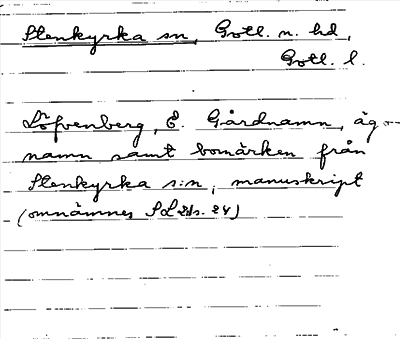 Stenkyrka sn, Gotl. n. hd,
Gotl. l.
Löfvenberg, E. Gårdnamn, äg---
namn samt bomärken från
Stenkyrka s:n, manuskript
(omnämnes 24)